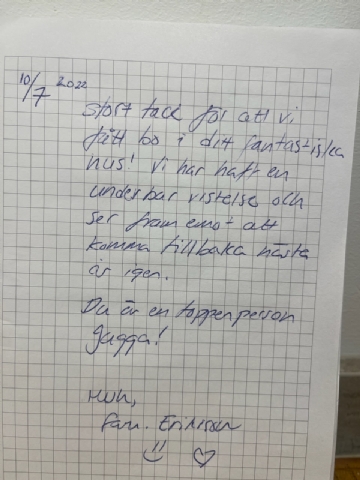 10/7 2022
Stort tack för att vi
fått bo i ditt fantastiska
hus! Vi har haft en
underbar vistelse och
ser fram emot att
komma tillbaka nästa
år igen.
Du är en toppenperson
Jagga!
Mvh,
fam. Eriksson